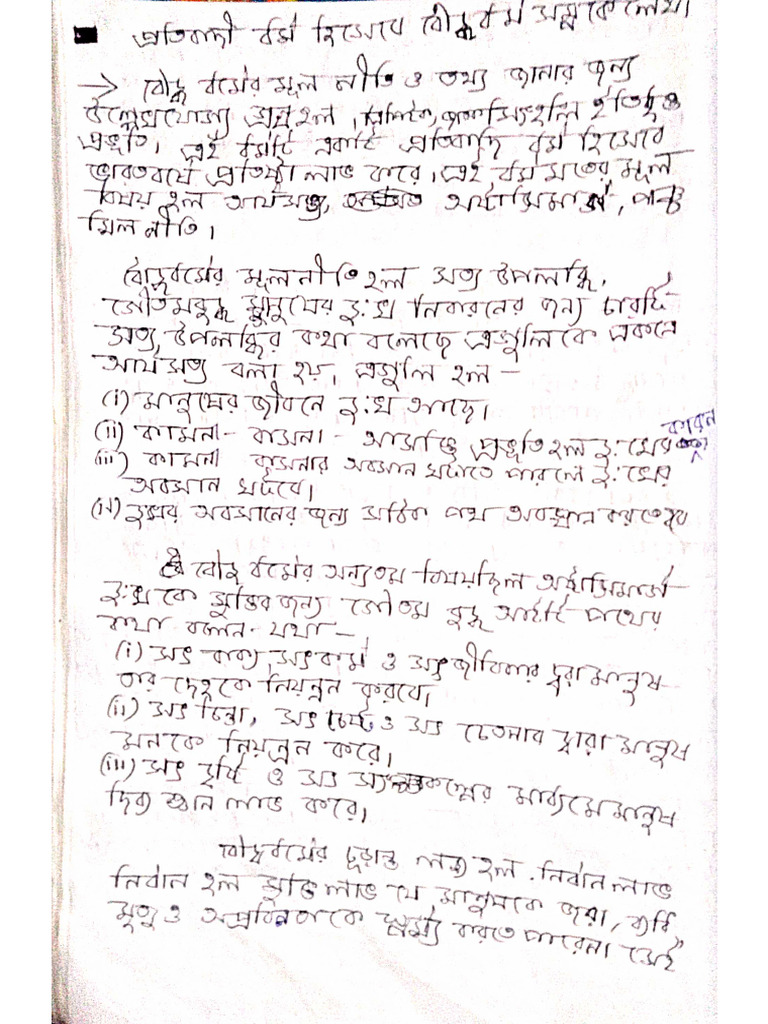 প্রতিবাদী ধর্ম হিসেবে বৌদ্ধধর্ম সম্পর্কে লেখ।
→ বৌদ্ধ ধর্মের মূল নীতি ও তথ্য জানার জন্য
উল্লেখযোগ্য গ্রন্থ হল, ত্রিপিটক, জাতক সিংহলি ইতিবৃত্ত
প্রভৃতি। এই ধর্মটি একটি প্রতিবাদি ধর্ম হিসেবে
ভারতবর্ষে প্রতিষ্ঠা লাভ করে। এই ধর্ম মতের মূল
বিষয় হল আর্যসত্য, অষ্টাঙ্গিমার্গ, পঞ্চ
শিল নীতি।
বৌদ্ধধর্মের মূলনীতি হল সত্য উপলব্ধি,
গৌতমবুদ্ধ মানুষের দুঃখ নিবারনের জন্য চারটি
সত্য উপলব্ধির কথা বলেছে এগুলিকে একত্রে
আর্যসত্য বলা হয়, এগুলি হল –
(i) মানুষের জীবনে দুঃখ আছে।
(ii) কামনা - বাসনা - আসক্তি প্রভৃতি হল দুঃখের কারন
(iii) কামনা বাসনার অবসান ঘটাতে পারলে দুঃখের
অবসান ঘটবে।
(iv) দুঃখের অবসানের জন্য সঠিক পথ অবলম্বন করতে হবে
বৌদ্ধ ধর্মের অন্যতম বিষয়ছিল অষ্টাঙ্গিমার্গ
দুঃখকে মুক্তির জন্য গৌতম বুদ্ধ আটটি পথের
কথা বলেন - যথা –
(i) সৎ বাক্য, সৎকর্ম ও সৎ জীবিকার দ্বারা মানুষ
তার দেহকে নিয়ন্ত্রন করবে।
(ii) সৎ চিন্তা, সৎ চেষ্টা ও সৎ চেতনার দ্বারা মানুষ
মনকে নিয়ন্ত্রন করে।
(iii) সৎ দৃষ্টি ও সৎ সংকল্পের মাধ্যমে মানুষ
দিব্য জ্ঞান লাভ করে।
বৌদ্ধধর্মের চূড়ান্ত লক্ষ্য হল নির্বান লাভ
নির্বান হল মুক্তি লাভ যে মানুষকে জরা, ব্যধি
মৃত্যু ও স্পর্শ করতে পারেনা সেই